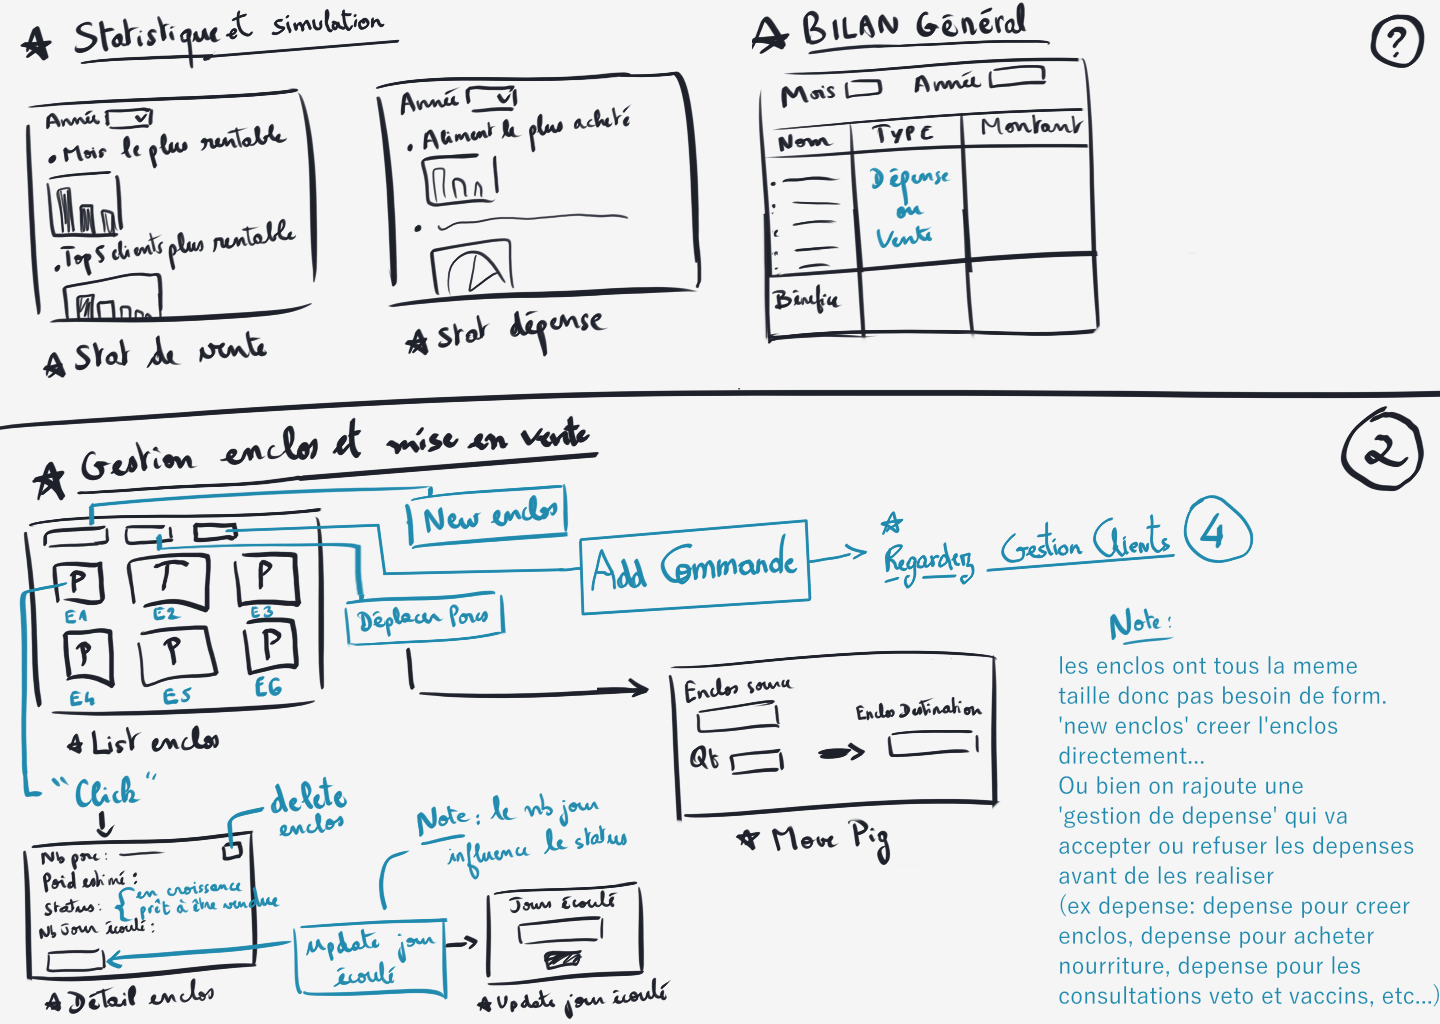 Statistique et simulation
Année
• Mois le plus rentable
• Top 5 clients plus rentable
Stat de vente
Année
• Aliment le plus acheté
Stat dépense
BILAN Général
?
Mois
Année
Nom
TYPE
Montant
Dépense
ou
Vente
Bénéfice
Gestion enclos et mise en vente
2
New enclos
P
T
P
E1
E2
E3
P
P
P
E4
E5
E6
List enclos
Add Commande
Regarder Gestion Clients 4
Déplacer Porcs
Enclos source
Enclos Destination
Qt
Move Pig
"Click"
delete
enclos
Nb porc :
Poid estimé :
Status : { en croissance
prêt à être vendue
Nb Jour écoulé :
Détail enclos
Note : le nb jour
influence le status
update jour
écoulé
Jours écoulé
Update jour écoulé
Note :
les enclos ont tous la meme
taille donc pas besoin de form.
'new enclos' creer l'enclos
directement...
Ou bien on rajoute une
'gestion de depense' qui va
accepter ou refuser les depenses
avant de les realiser
(ex depense: depense pour creer
enclos, depense pour acheter
nourriture, depense pour les
consultations veto et vaccins, etc...)